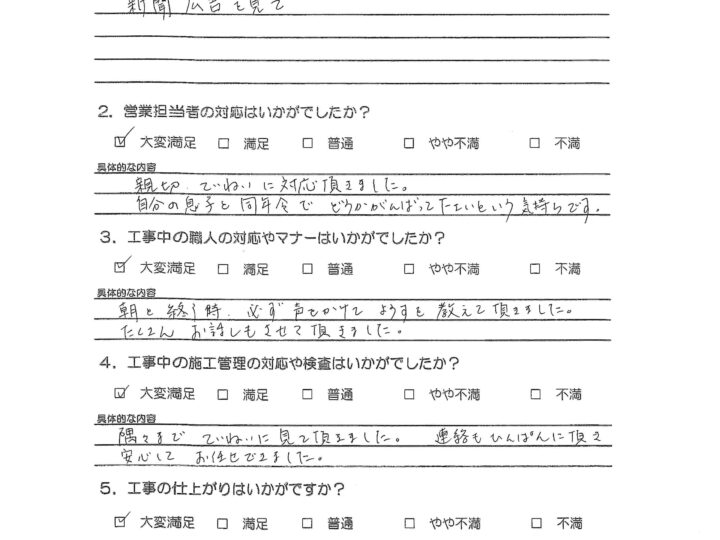 新聞広告を見て
2. 営業担当者の対応はいかがでしたか？
☑ 大変満足 □ 満足 □ 普通 □ やや不満 □ 不満
具体的な内容
親切、ていねいに対応頂きました。
自分の息子と同年令で どうかがんばって という気持ちです。
3. 工事中の職人の対応やマナーはいかがでしたか？
☑ 大変満足 □ 満足 □ 普通 □ やや不満 □ 不満
具体的な内容
朝と終う時、必ず声をかけて ようすを 教えて頂きました。
たくさん お話しもさせて頂きました。
4. 工事中の施工管理の対応や検査はいかがでしたか？
☑ 大変満足 □ 満足 □ 普通 □ やや不満 □ 不満
具体的な内容
隅々まで ていねいに見て頂きました。 連絡も ひんぱんに頂き
安心して お任せできました。
5. 工事の仕上がりはいかがですか？
☑ 大変満足 □ 満足 □ 普通 □ やや不満 □ 不満